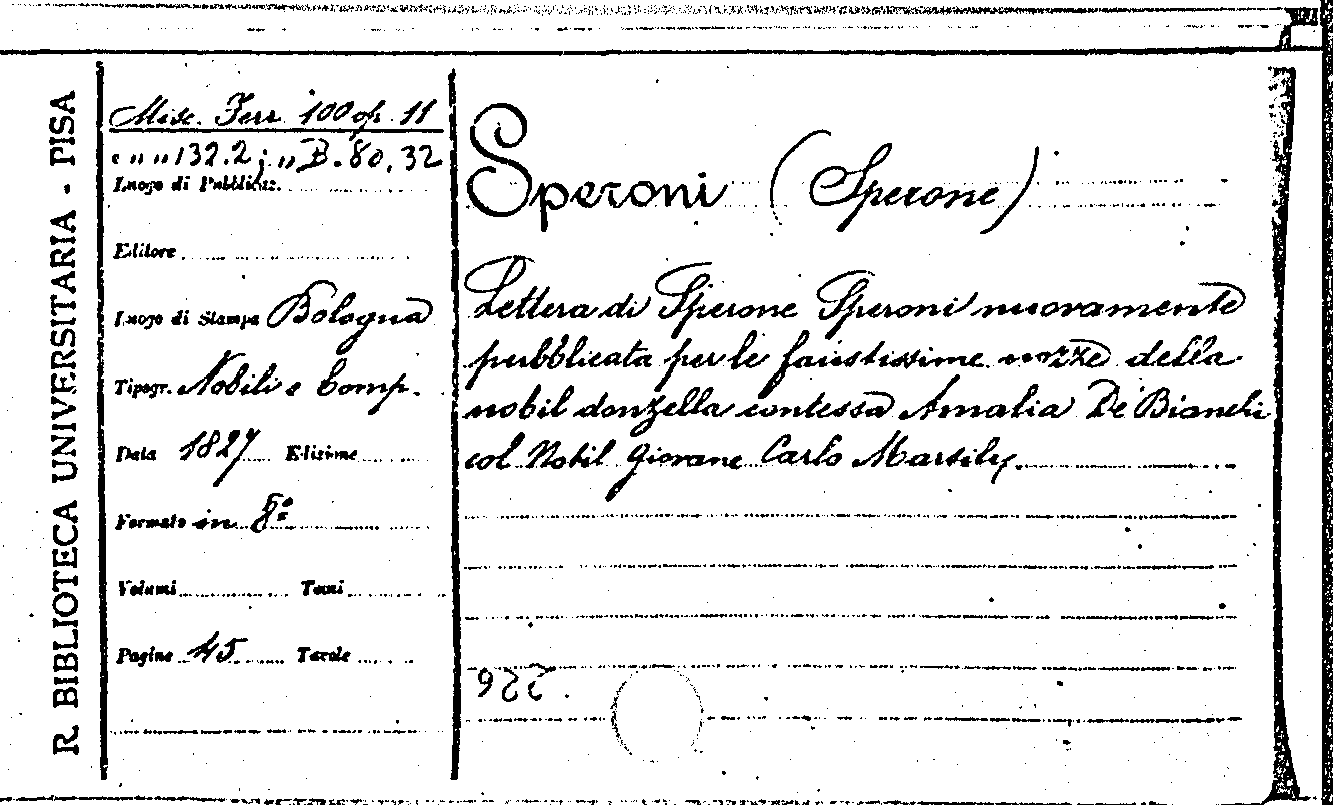 R. BIBLIOTECA UNIVERSITARIA - PISA
Misc. Ferr. 100 op. 11
e " " 132.2; " B. 80. 32
Luogo di Pubblicaz.
Editore
Luogo di Stampa Bologna
Tipogr. Nobili e Comp.
Data 1827 Edizione
Formato in 8º
Volumi Tomi
Pagine 15 Tavole
Speroni (Sperone)
Lettera di Sperone Speroni nuovamente
pubblicata per le faustissime nozze della
nobil donzella contessa Amalia De Bianchi
col Nobil Giovane Carlo Marsily.